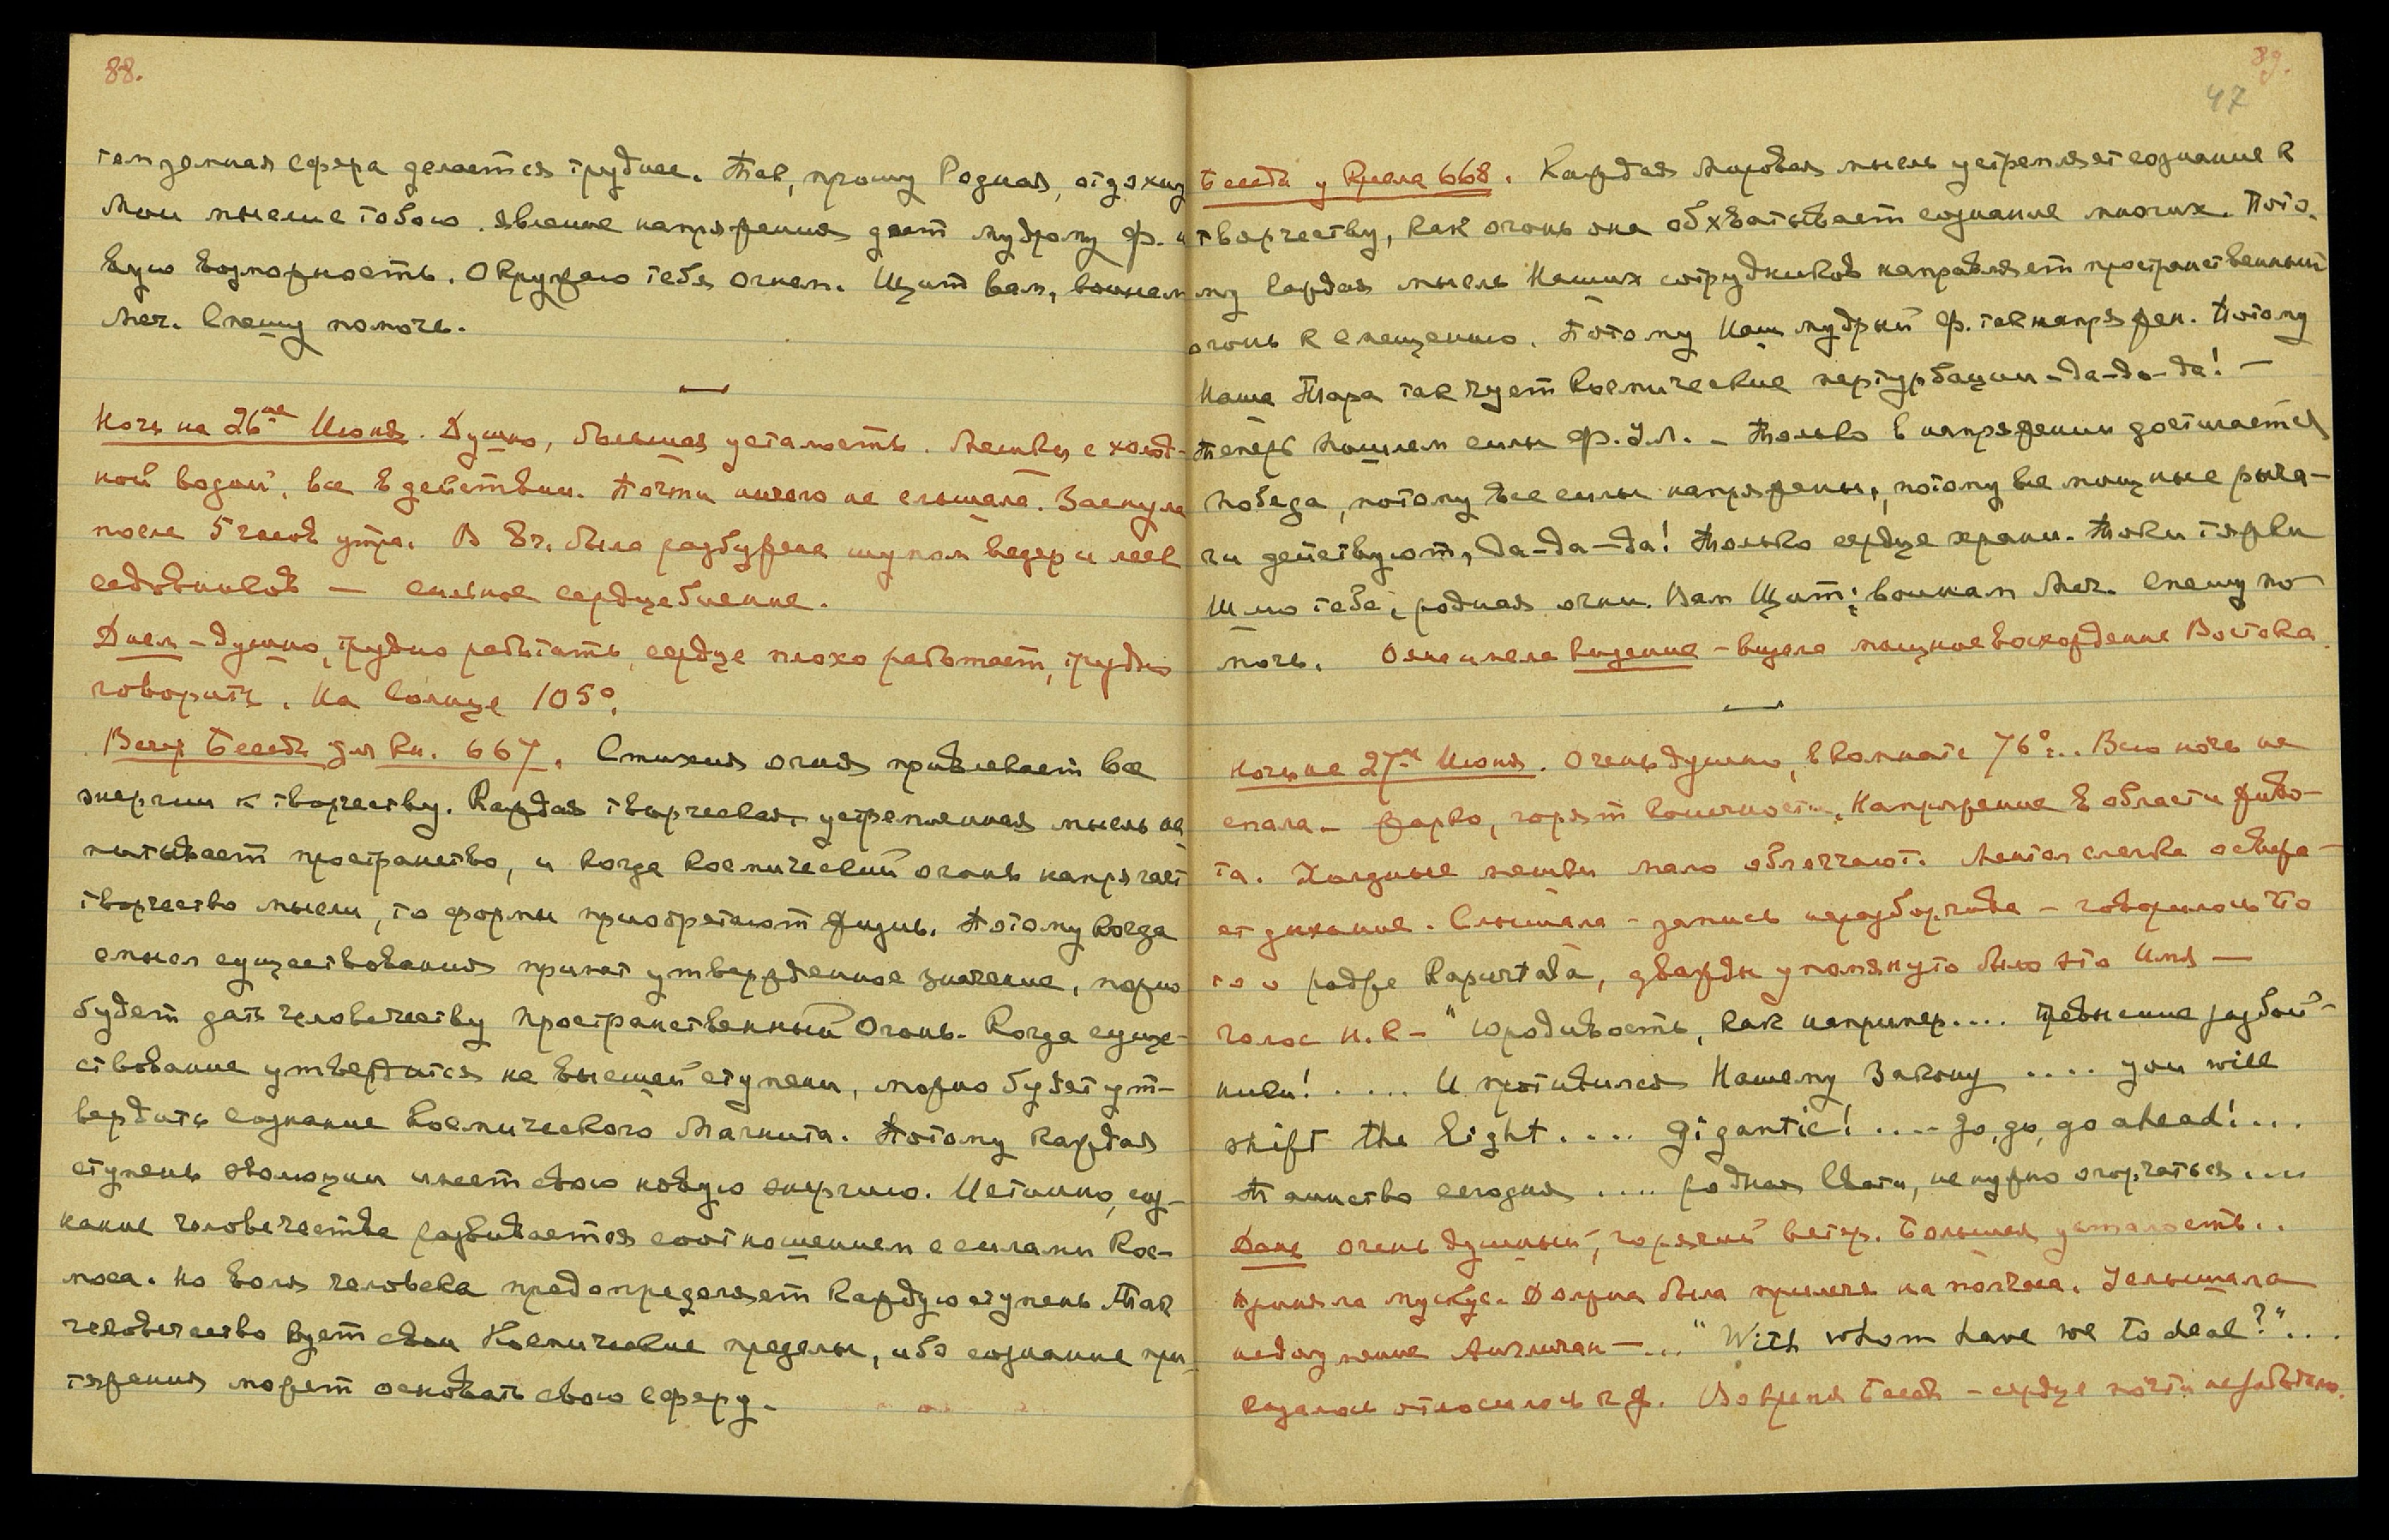 88.
танземная сфера делается труднее. Так, прошу Родная, отдохни
Мои мысли с тобою. явление напряжения дает мудрому Ф. и
вую возможность. Окружаю тебя огнем. Щит вам, воинам
Меч. Спешу помочь.
Ночь на 26ое Июня. Душно, большая усталость. Мешки с холод-
ной водой, все в действии. Почти ничего не слышала. Заснула
после 5 часов утра. В 8ч. была разбужена шумом ведер и леек
садовников — сильное сердцебиение.
Днем – душно, трудно работать, сердце плохо работает, трудно
говорить. На Солнце 105°.
Вечер Беседа для Кн. 667. Стихия огня привлекает все
энергии к творчеству. Каждая творческая, устремленная мысль на
питывает пространство, и когда космический огонь напрягает
творчество мысли, то формы приобретают жизнь. Потому когда
смысл существования примет утвержденное значение, можно
будет дать человечеству Пространственный Огонь. Когда суще-
ствование утвердится на высшей ступени, можно будет ут-
вердить сознание Космического Магнита. Потому каждая
ступень эволюции имеет свою новую энергию. Истинно, соз-
нание человечества развивается соотношением с силами Кос-
моса. Но воля человека предопределяет каждую ступень. Так
человечество кует свои Космические пределы, ибо сознание при-
тяжения может основать свою сферу.
89.
47
Беседа у Кресла 668. Каждая Мировая мысль устремляет сознание к
творчеству, как огонь она обхватывает сознание многих. Пото-
му каждая мысль Наших сотрудников направляет пространственный
огонь к смещению. Потому Наш мудрый Ф. так напряжен. Потому
Наша Тара так чует космические пертурбации – да-да-да! –
Теперь Пошлем силы Ф. Ул. – Только в напряжении достигается
победа, потому все силы напряжены, потому все мощные рыча-
ги действуют, да-да-да! Только сердце храни. Токи тяжки
Шлю тебе, родная огни. Вам Щит; воинам Меч. Спешу по-
мочь. Ояна имела видение – видела мощное восхождение Востока.
Ночь на 27ое Июня. Очень душно, в комнате 76°... Всю ночь не
спала – жарко, горят конечности. Напряжение в области живо-
та. Холодные мешки мало облегчают. Ментол слегка освежа-
ет дыхание. Слышала – запись неразборчива – говорилось что
то о радже Kapurtala, дважды упомянуто было это имя —
голос Н.К – "юродивость, как например.... превысшие разбой-
ники! ..... И противился Нашему Закону .... you will
shift the light .... gigantic! .... go, go, go ahead! ...
Таинство сегодня .... родная Свати, не нужно огорчаться....
День очень душный, горячий ветер. Большая усталость..
Приняла мускус. Должна была прилечь на полчаса. Услышала
недоумение Англичан — ... "With whom have we to deal?"...
казалось относилось к Ф. Во время Бесед – сердце почти не работало.